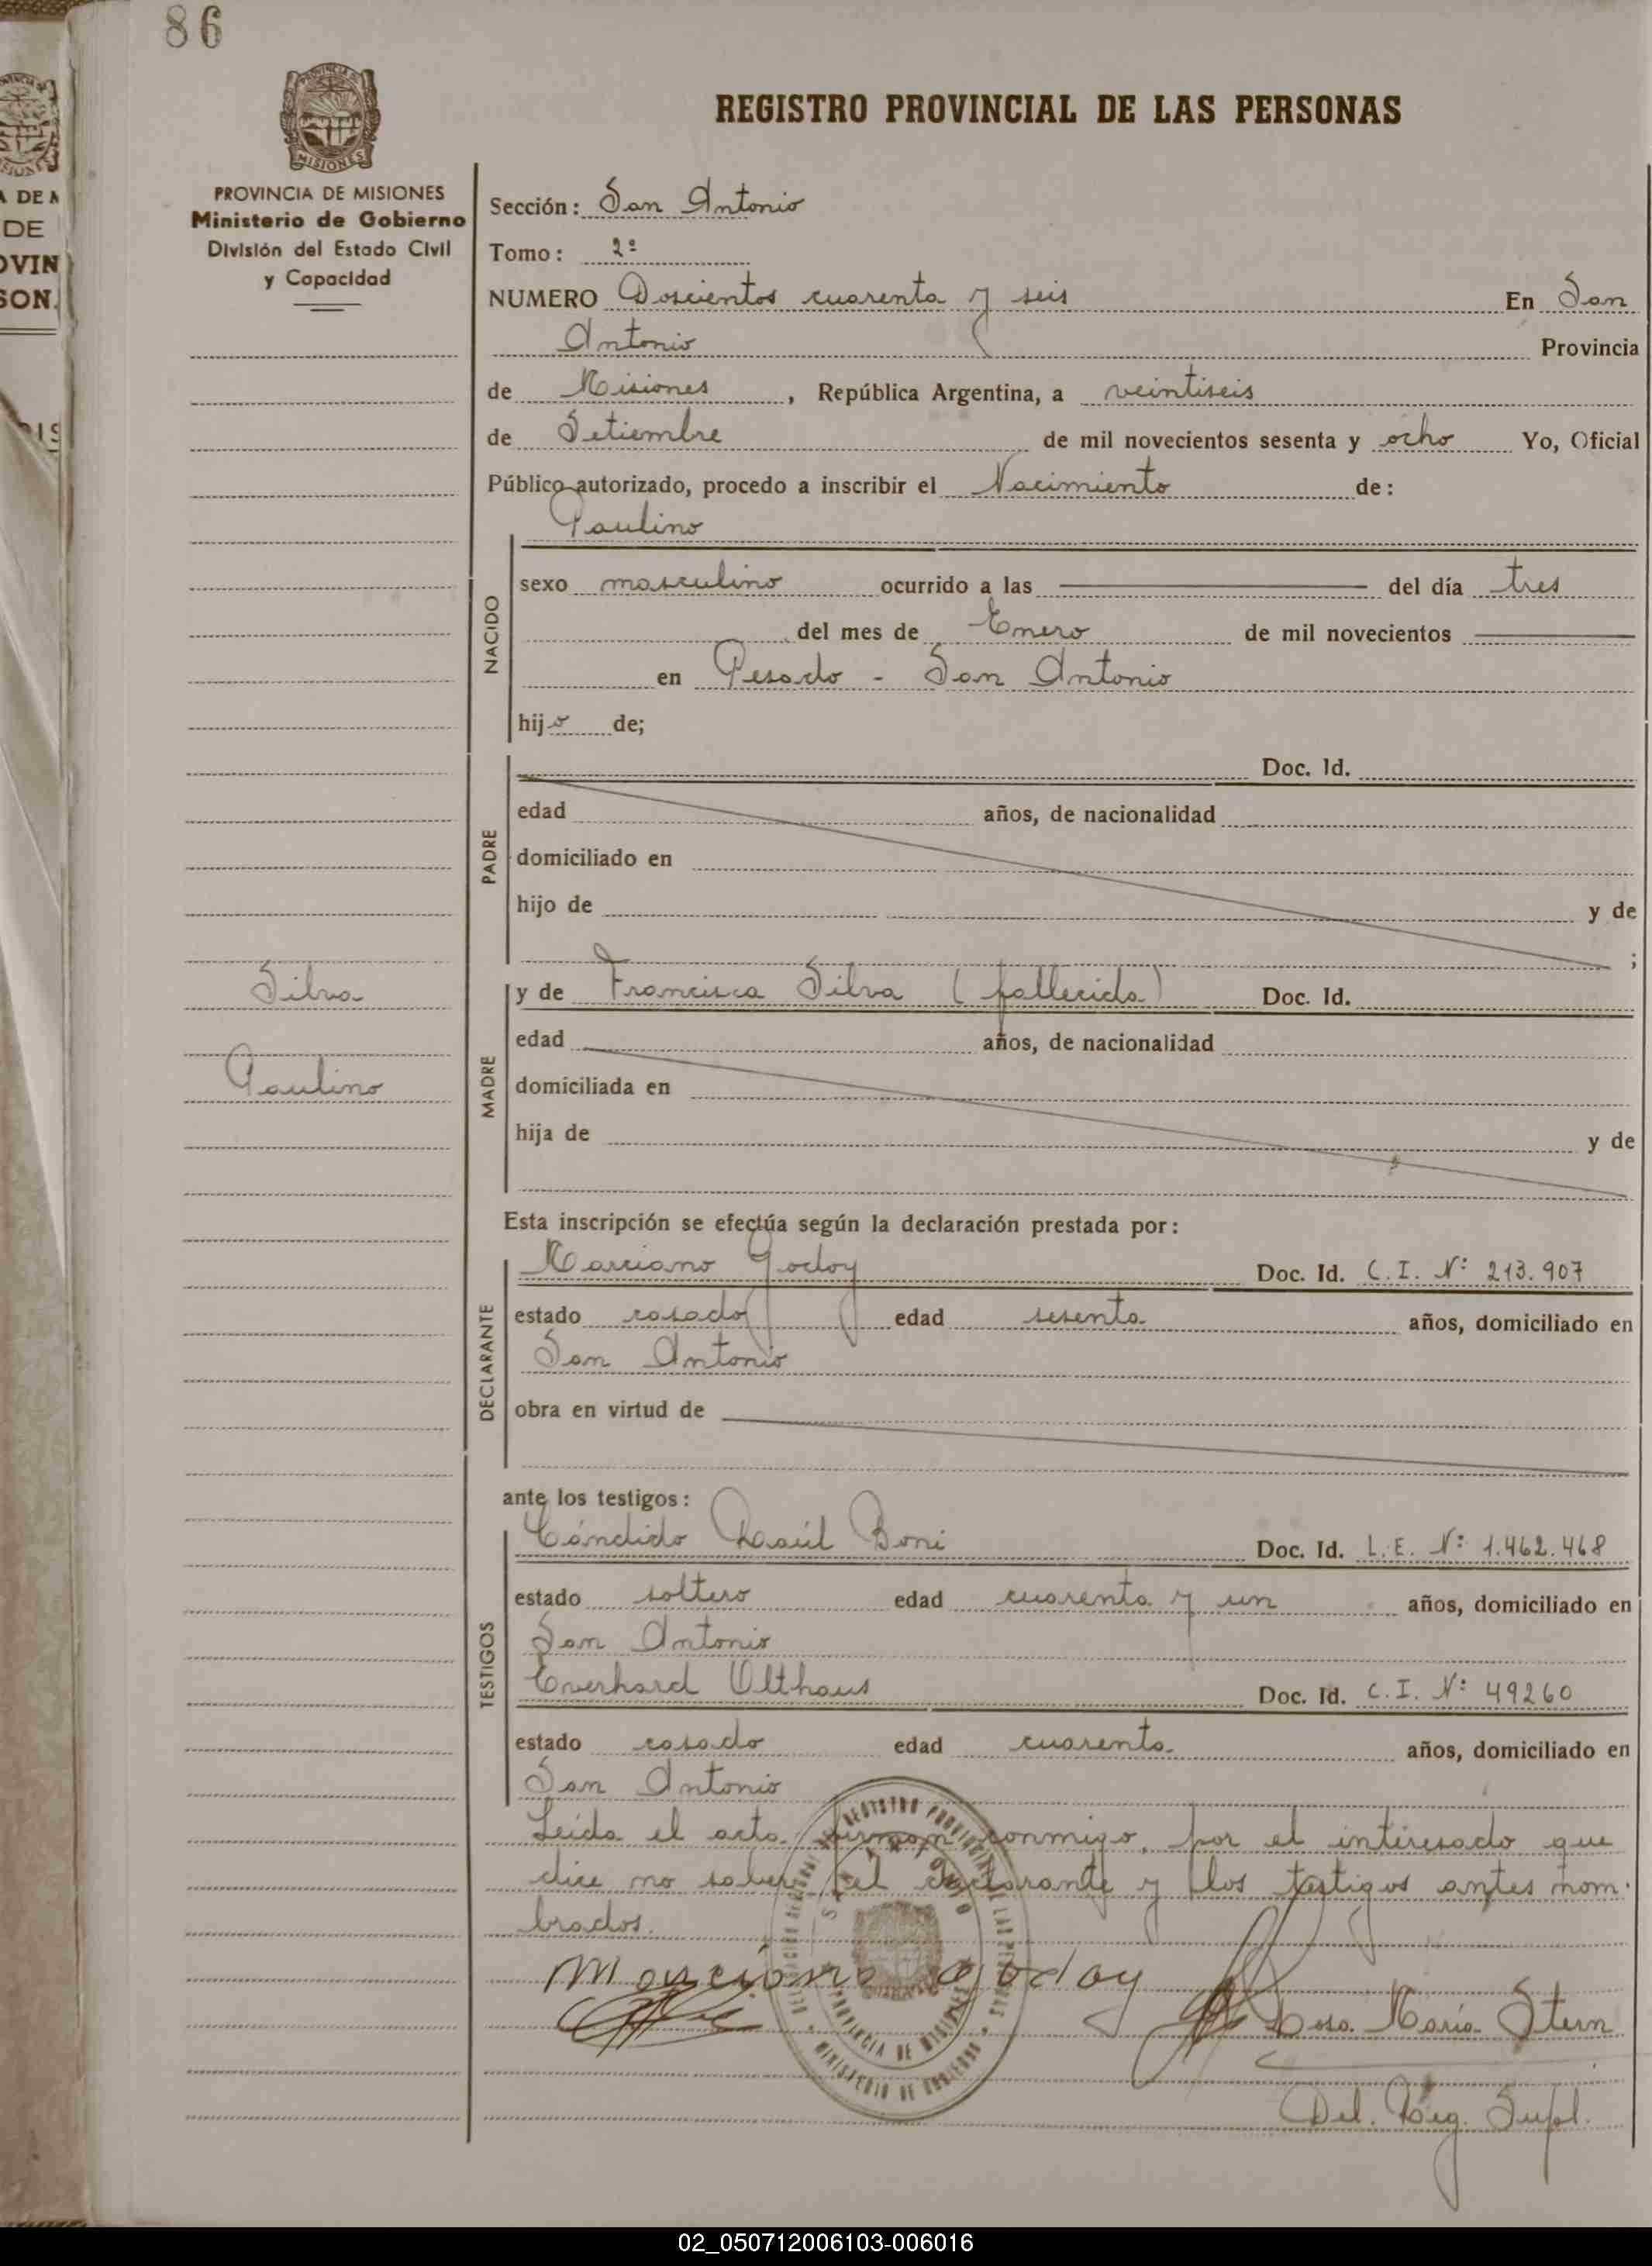 86
REGISTRO PROVINCIAL DE LAS PERSONAS
MISIONES
PROVINCIA DE MISIONES
Ministerio de Gobierno
División del Estado Civil
y Capacidad
Sección: San Antonio
Tomo: 2º
NUMERO Doscientos cuarenta y seis En San
Antonio Provincia
de Misiones, República Argentina, a veintiseis
de Setiembre de mil novecientos sesenta y ocho Yo, Oficial
Público autorizado, procedo a inscribir el Nacimiento de:
NACIDO
Paulino
sexo masculino ocurrido a las del día tres
del mes de Enero de mil novecientos
en Pesado - San Antonio
hijo de;
PADRE
Doc. Id.
edad años, de nacionalidad
domiciliado en
hijo de y de
;
Silva
Paulino
MADRE
y de Francisca Silva (fallecida) Doc. Id.
edad años, de nacionalidad
domiciliada en
hija de y de
Esta inscripción se efectúa según la declaración prestada por:
DECLARANTE
Marciano Godoy Doc. Id. C. I. Nº 213.907
estado casado edad sesenta años, domiciliado en
San Antonio
obra en virtud de
ante los testigos:
TESTIGOS
Cándido Raúl Boni Doc. Id. L. E. Nº 1.462.468
estado soltero edad cuarenta y un años, domiciliado en
San Antonio
Everhard Olthaus Doc. Id. C. I. Nº 49260
estado casado edad cuarenta años, domiciliado en
San Antonio
Leída el acta, firman conmigo, por el interesado que
dice no saber, el declarante y los testigos antes nom-
brados.
Marciano Godoy
Rosa María Stern
Del. Reg. Supl.
PROVINCIA DE MISIONES
MINISTERIO DE GOBIERNO
02_050712006103-006016